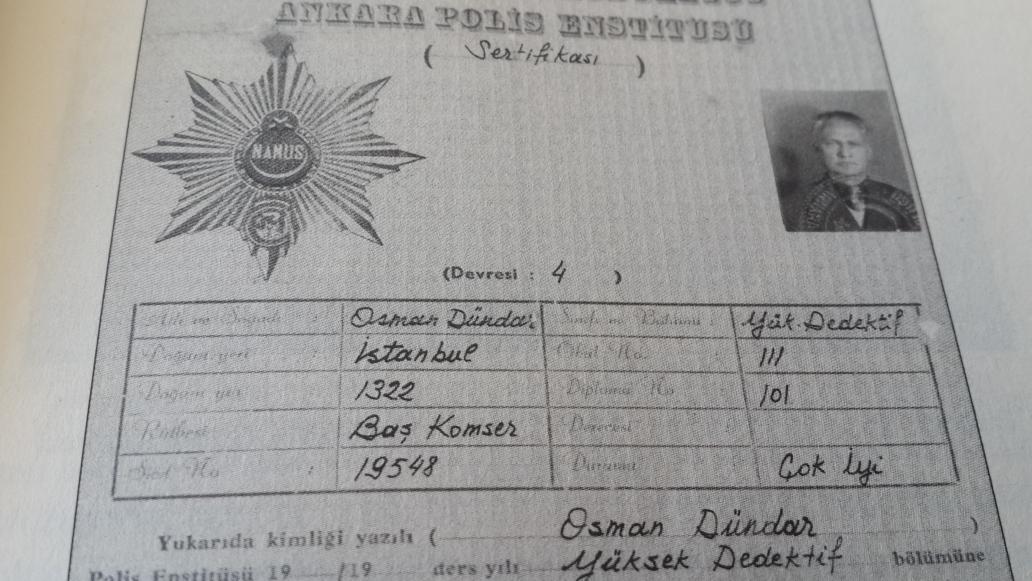 ANKARA POLİS ENSTİTÜSÜ
( Sertifikası )
NAMUS
(Devresi : 4 )
Adı ve Soyadı : Osman Dündar Sınıfı ve Bölümü : Yük. Dedektif
Doğum yeri : İstanbul Okul No. 111
Doğum 1322 Diploma No 101
Rütbesi Baş Komser Derecesi :
Sicil No : 19548 Durumu Çok İyi
Yukarıda kimliği yazılı ( Osman Dündar )
Polis Enstitüsü 19 /19 ders yılı Yüksek Dedektif bölümüne